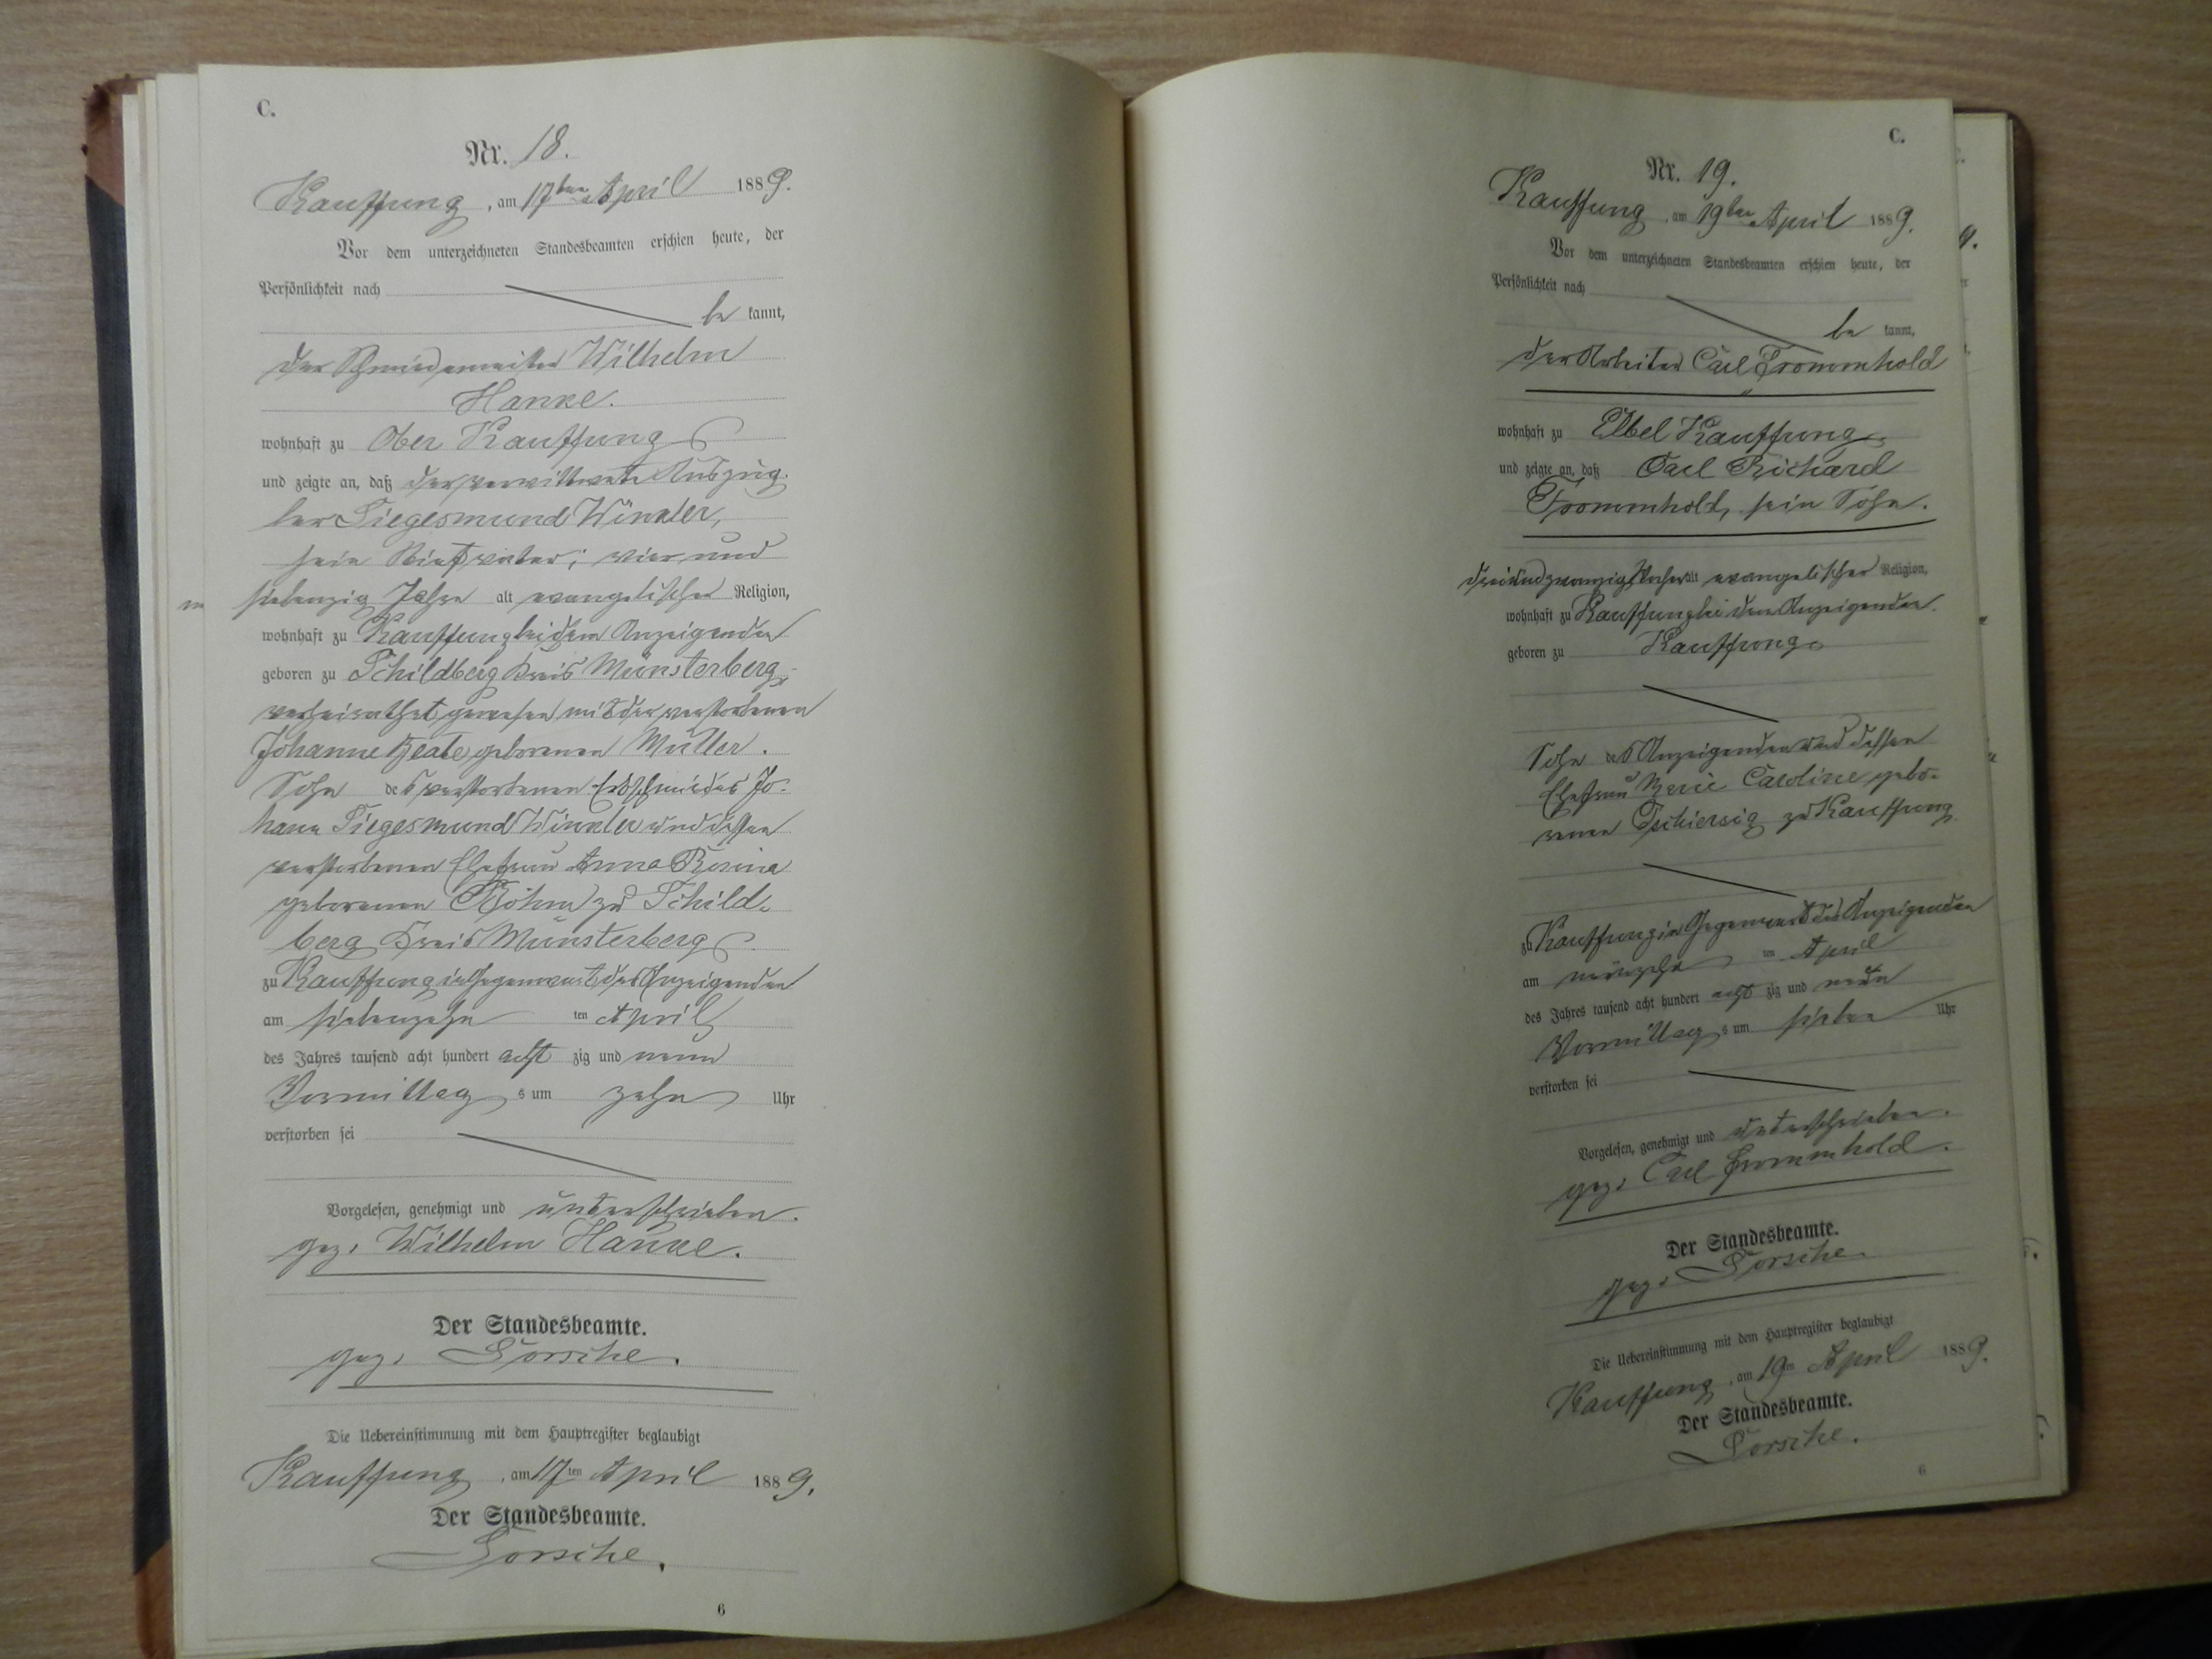 C.
Nr. 18.
Kauffung, am 17ten April 1889.
Vor dem unterzeichneten Standesbeamten erschien heute, der
Persönlichkeit nach
be kannt,
der Schmiedemeister Wilhelm
Hanke.
wohnhaft zu Ober Kauffung
und zeigte an, daß der verwittwete Auszüg-
ler Siegesmund Winkler,
sein vier und
siebenzig Jahre alt evangelischer Religion,
wohnhaft zu Kauffung bei dem Anzeigenden
geboren zu Schildberg Kreis Münsterberg,
verheirathet gewesen mit der verstorbenen
Johanne Beate geborenen Müller.
Sohn des verstorbenen Erbschmiedes Jo-
hann Siegesmund Winkler und dessen
verstorbenen Ehefrau Anna Rosina
geborenen Böhm zu Schild-
berg Kreis Münsterberg
zu Kauffung in Gegenwart des Anzeigenden
am siebenzehn ten April
des Jahres tausend acht hundert acht zig und neun
Vormittag s um zehn Uhr
verstorben sei
Vorgelesen, genehmigt und unterschrieben.
gez. Wilhelm Hanke.
Der Standesbeamte.
gez. Dorsche.
Die Uebereinstimmung mit dem Hauptregister beglaubigt
Kauffung, am 17ten April 1889.
Der Standesbeamte.
Dorsche.
6
C.
Nr. 19.
Kauffung, am 19ten April 1889.
Vor dem unterzeichneten Standesbeamten erschien heute, der
Persönlichkeit nach
be kannt,
der Arbeiter Carl Frommhold
wohnhaft zu Elbel Kauffung
und zeigte an, daß Carl Richard
Frommhold, sein Sohn.
dreiundzwanzig Wochen alt evangelischer Religion,
wohnhaft zu Kauffung bei dem Anzeigenden.
geboren zu Kauffung
Sohn des Anzeigenden und dessen
Ehefrau Marie Caroline gebo-
renen Tschiersig zu Kauffung
zu Kauffung in Gegenwart des Anzeigenden
am neunzehn ten April
des Jahres tausend acht hundert acht zig und neun
Vormittag s um sieben Uhr
verstorben sei
Vorgelesen, genehmigt und unterschrieben.
gez. Carl Frommhold.
Der Standesbeamte.
gez. Dorsche.
Die Uebereinstimmung mit dem Hauptregister beglaubigt
Kauffung, am 19ten April 1889.
Der Standesbeamte.
Dorsche.
6